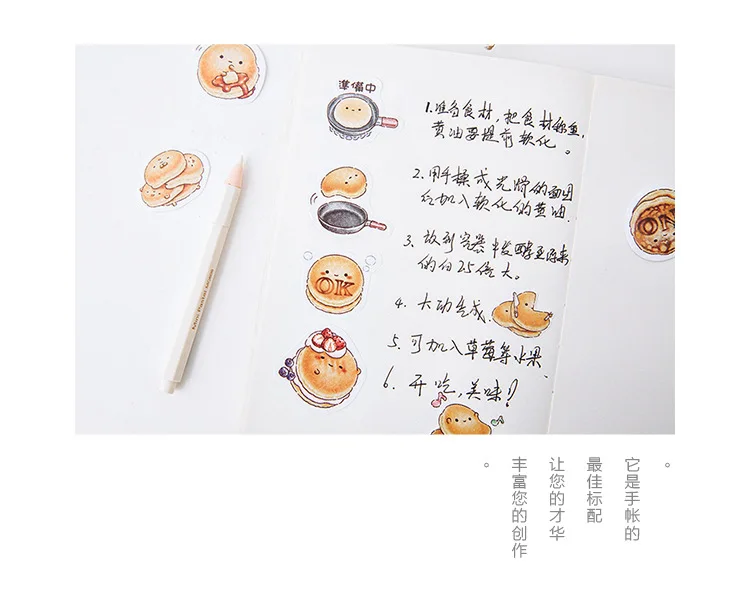 準備中
1.准备食材，把食材称重，
黄油要提前软化。
2.用手揉成光滑的面团
后加入软化的黄油
3.放到容器中发酵至原来
的2.5倍大。
4.大功告成
5.可加入草莓等水果
6.开吃，美味！
OK
ON
它是手帐的
最佳标配
让您的才华
丰富您的创作。